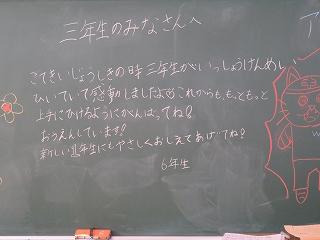 三年生のみなさんへ
こてきいじょうしきの時三年生がいっしょうけんめい
ひいていて感動しましたよ。これからも、もっともっと
上手にひけるようにがんばってね!
おうえんしています!
新しい1年生にもやさしくおしえてあげてね!
6年生